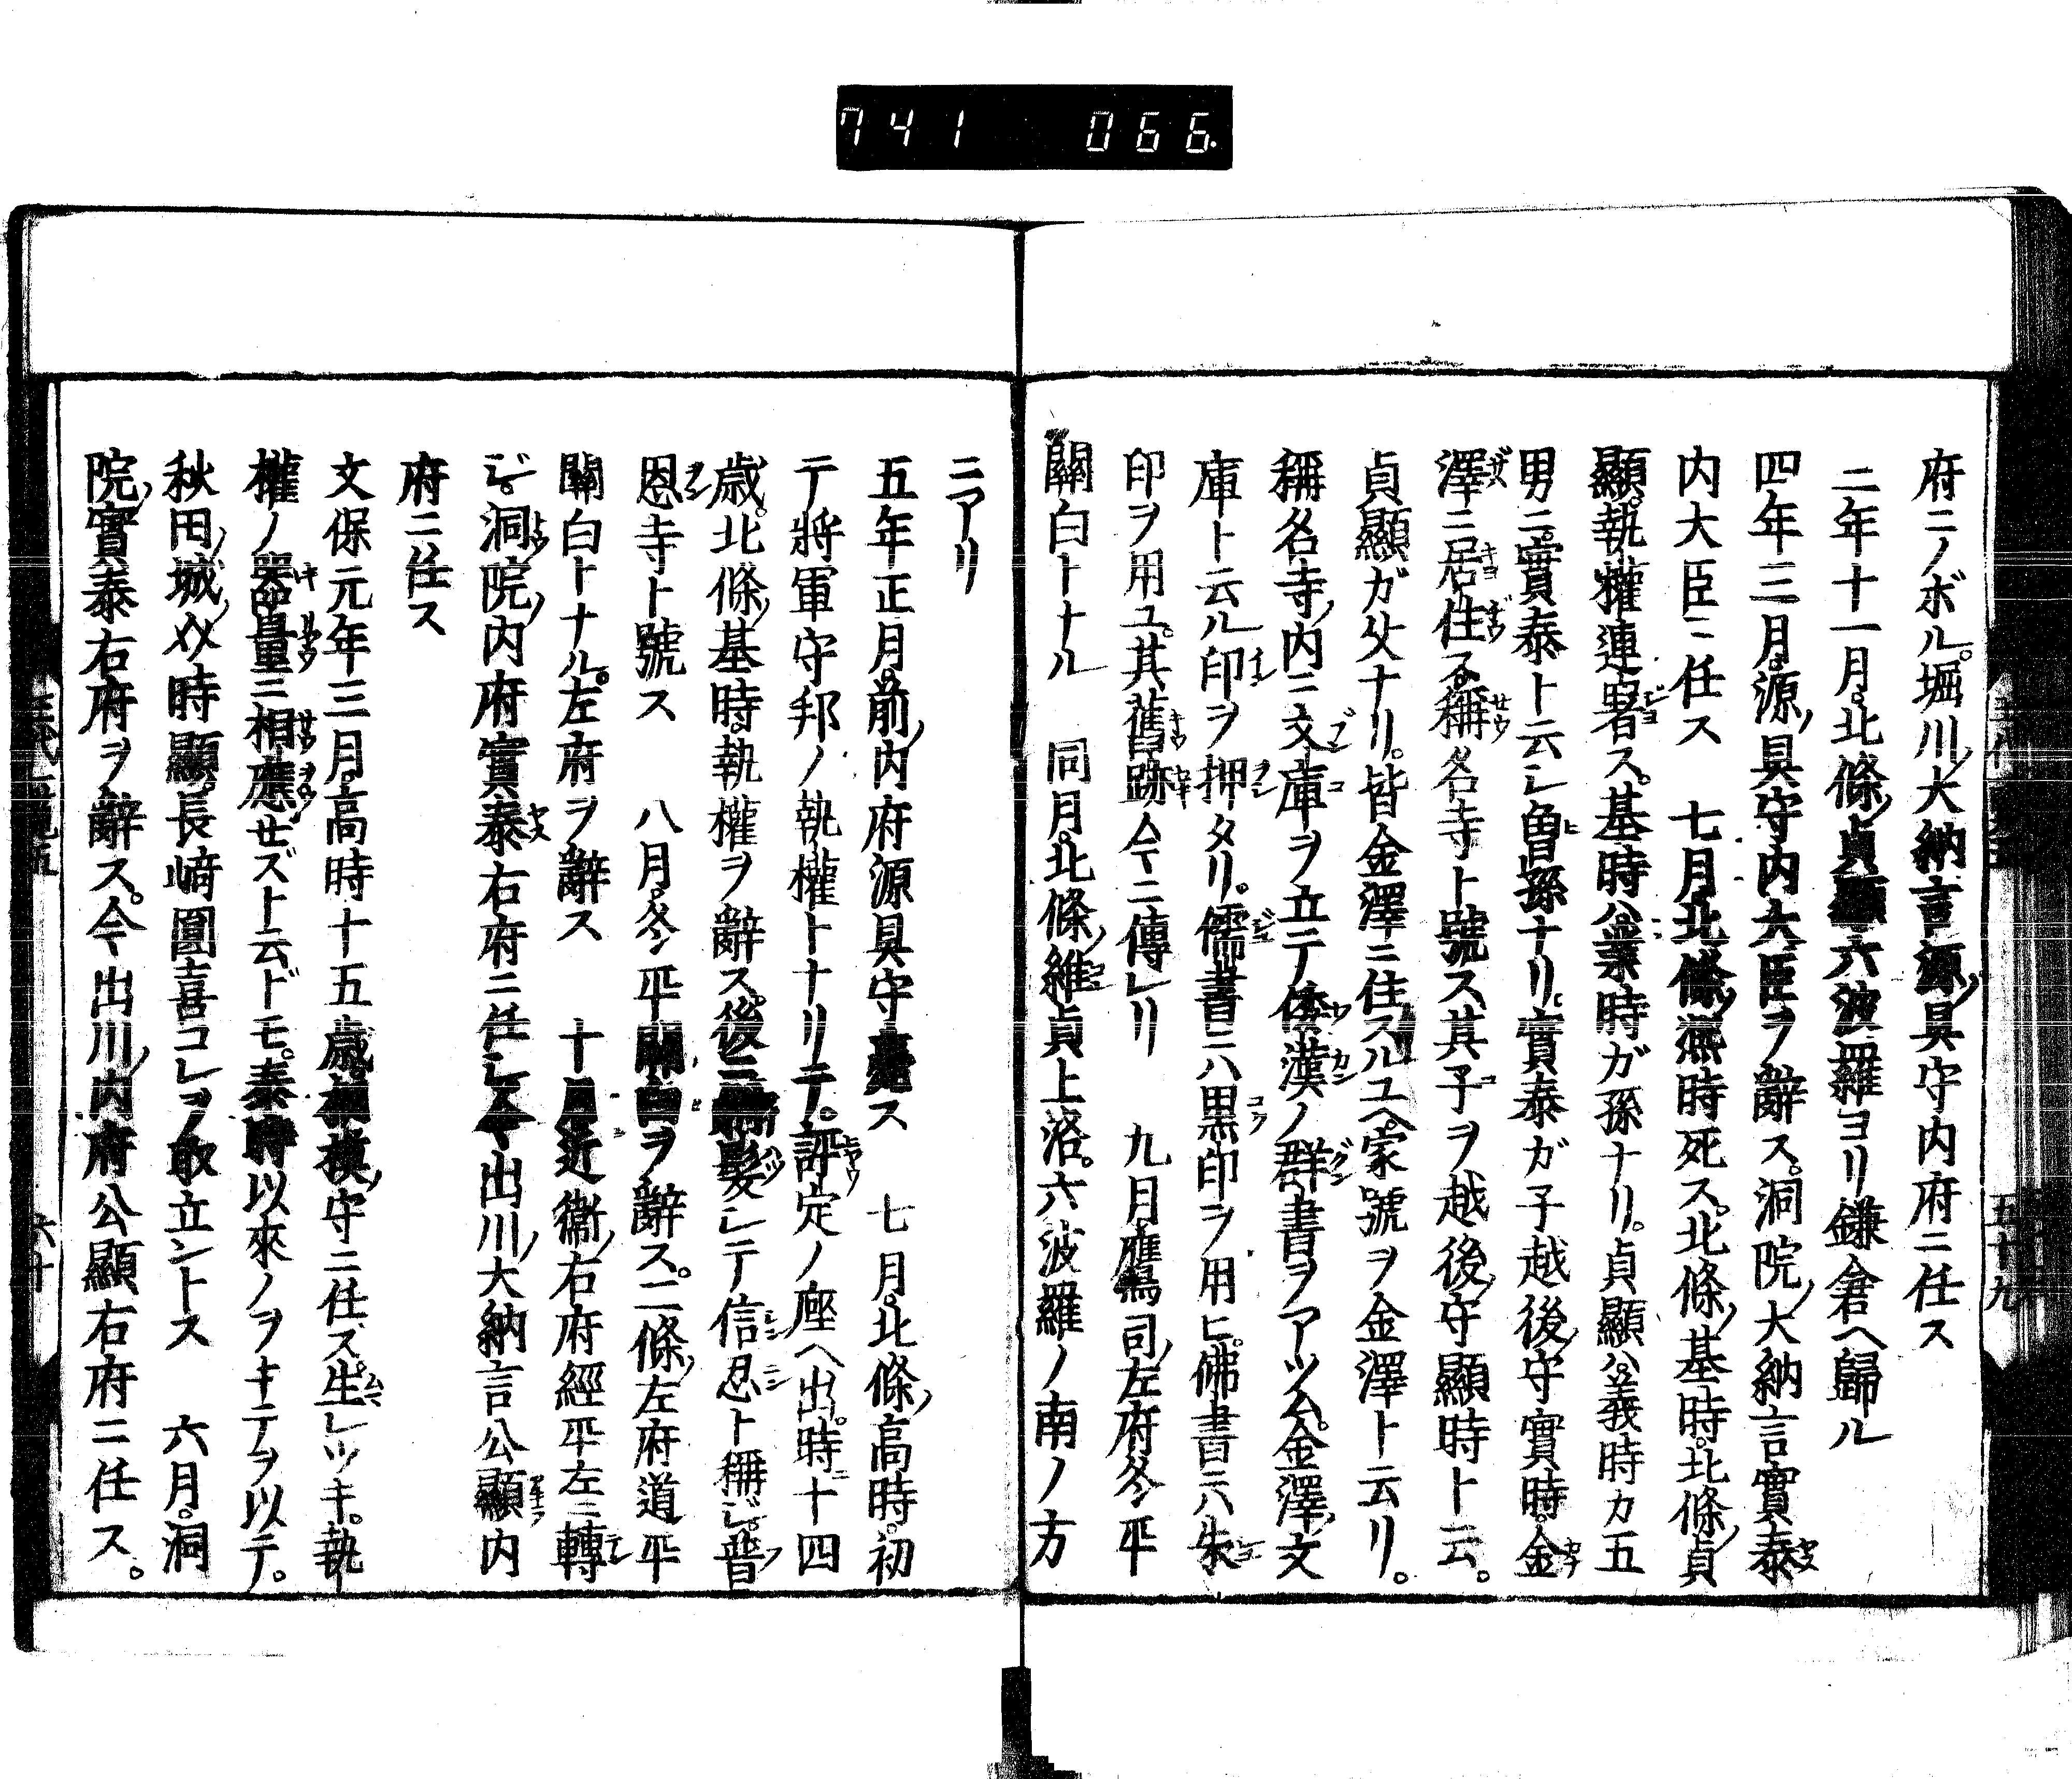 741 066
府ニノボル。堀川ノ大納言源ノ具守内府ニ任ス
二年十一月。北條ノ貞顯六波羅ヨリ鎌倉ヘ歸ル
四年三月。源ノ具守内大臣ヲ辭ス。洞院ノ大納言實泰
内大臣ニ任ス 七月。北條ノ凞時死ス。北條ノ基時。北條ノ貞
顯。執權連署ス。基時ハ業時ガ孫ナリ。貞顯ハ義時カ五
男ニ實泰ト云シ曽孫ナリ。實泰ガ子越後ノ守實時。金
澤ニ居住シ稱名寺ト號ス其子ヲ越後ノ守顯時ト云。
貞顯ガ父ナリ。皆金澤ニ住スルユヘ家號ヲ金澤ト云リ。
稱名寺ノ内ニ文庫ヲ立テ倭漢ノ群書ヲアツム。金澤ノ文
庫ト云ル印ヲ押タリ。儒書ニハ黒印ヲ用ヒ。佛書ニハ朱
印ヲ用ユ。其舊跡今ニ傳レリ 九月鷹司ノ左府冬平
關白トナル 同月。北條ノ維貞上洛。六波羅ノ南ノ方
ニアリ
五年正月。前ノ内府源具守薨ス 七月。北條ノ高時。初
テ將軍守邦ノ執權トナリテ。評定ノ座ヘ出。時ニ十四
歳。北條ノ基時。執權ヲ辭ス。後ニ薙髮シテ信忍ト稱ジ。普
恩寺ト號ス 八月。冬平關白ヲ辭ス。二條ノ左府道平
關白トナル。左府ヲ辭ス 十月近衞ノ右府經平左ニ轉
ジ。洞院ノ内府實泰右府ニ任シ今出川ノ大納言公顯内
府ニ任ス
文保元年三月。高時十五歳。相模ノ守ニ任ス。生レツキ。執
權ノ器量ニ相應セズト云ドモ。泰時以來ノヲキテヲ以テ。
秋田ノ城ノ介時顯。長﨑圓喜コレヲ取立ントス 六月。洞
院ノ實泰右府ヲ辭ス。今出川ノ内府公顯右府ニ任ス。
五十九
六十